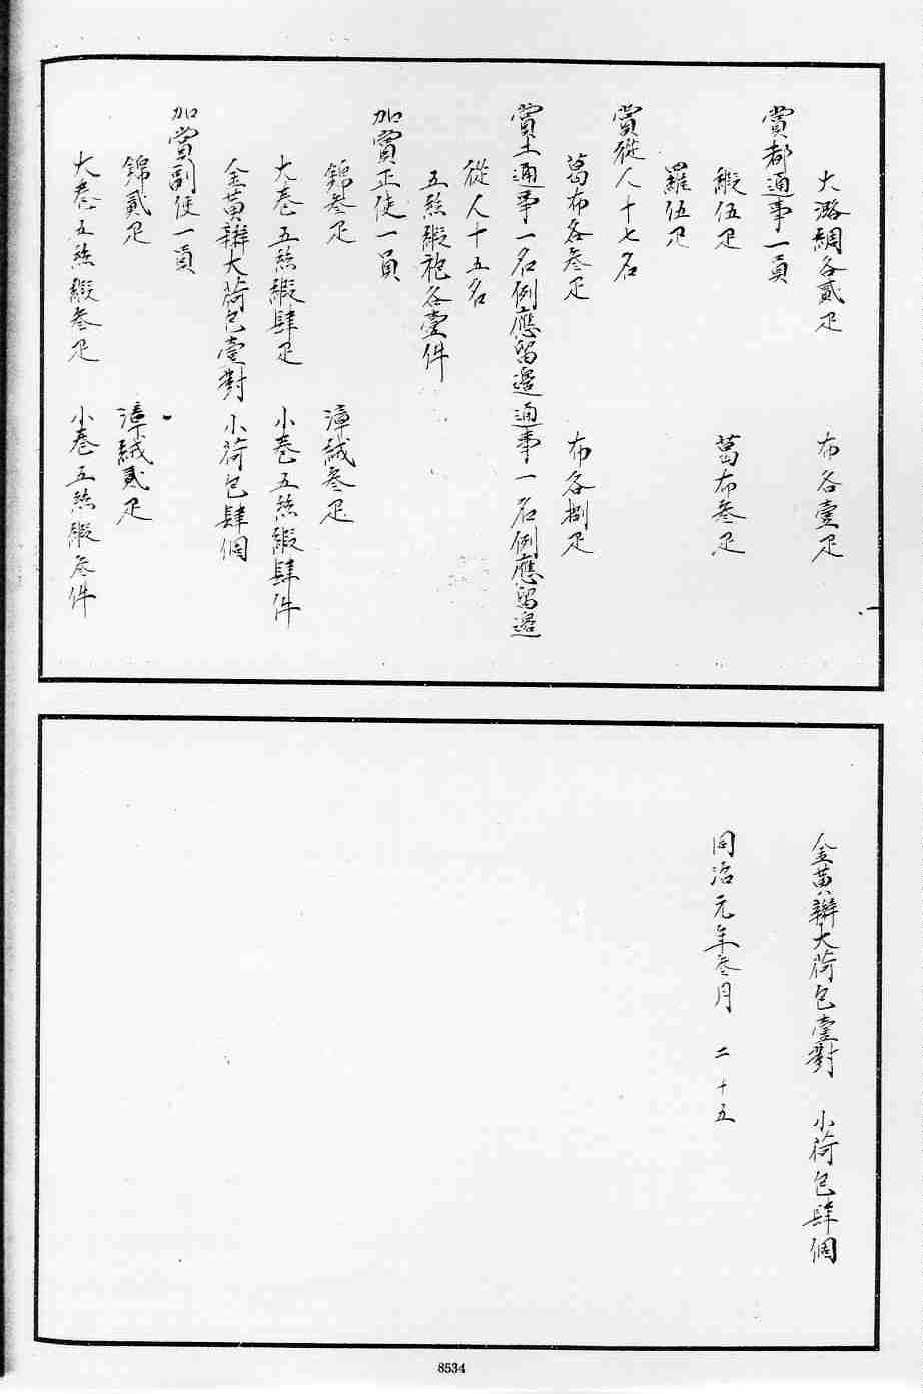 大潞綢各貳疋　布各壹疋
賞都通事一員
緞伍疋　葛布叁疋
羅伍疋
賞從人十七名
葛布各叁疋　布各捌疋
賞土通事一名例應留邊通事一名例應留邊
從人十五名
五絲緞袍各壹件
加賞正使一員
錦叁疋　漳絨叁疋
大卷五絲緞肆疋　小卷五絲緞肆件
金黃辮大荷包壹對　小荷包肆個
加賞副使一員
錦貳疋　漳絨貳疋
大卷五絲緞叁疋　小卷五絲緞叁件
金黃辮大荷包壹對　小荷包肆個
同治元年叁月　二十五
8534